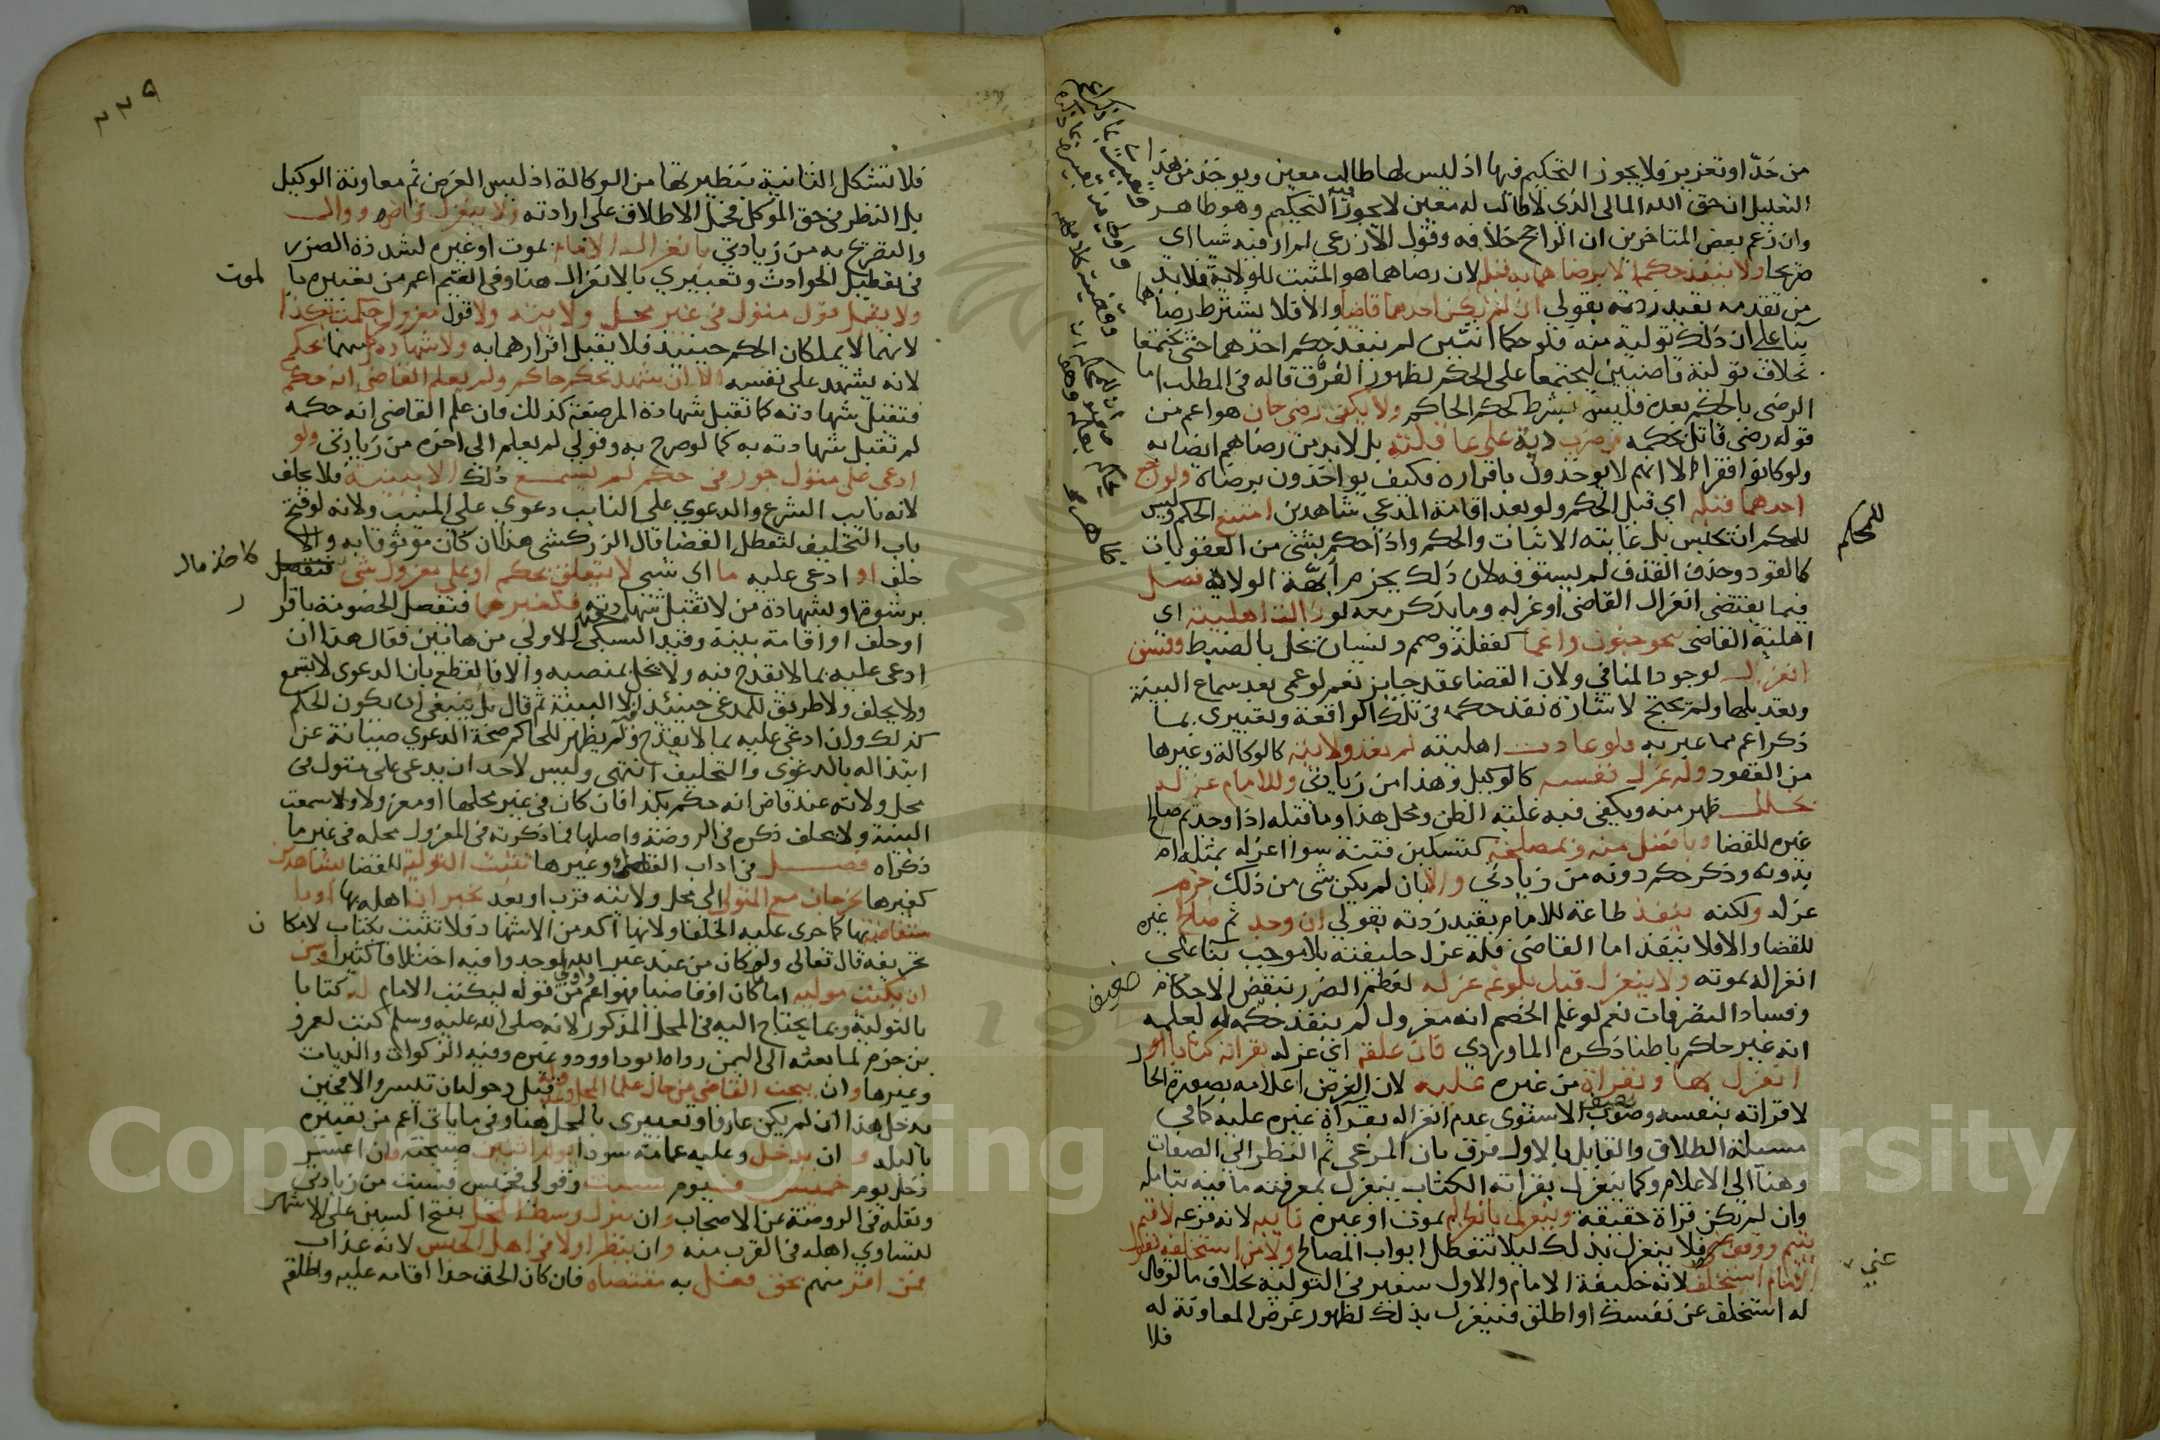 من حد او تعزير فلا يجوز التحكيم فيها اذ ليس لها طالب معين ويوخذ من هذا
التعليل ان حق الله المالى الذى لا طالب له معين لا يجوز فيه التحكيم وهو ظاهر
وان زعم بعض المتاخرين ان الراجح خلافه وقول الاذرعى لم ار فيه شيا اى
صريحا ولا ينفذ حكمه الا برضاهما به قبله لان رضاهما هو المثبت للولاية فلا بد
من تقدمه بقيد زدته بقولى ان لم يكن احدهما قاضيا والا فلا يشترط رضاهما
بنا على ان ذلك تولية منه فلو حكما اثنين لم ينفذ حكم احدهما حتى يجتمعا
بخلاف تولية قاضيين ليجتمعا على الحكم لظهور الفرق قاله فى المطلب اما
الرضى بالحكم بعده فليس بشرط كحكم الحاكم ولا يكفى رضى جان هو اعم من
قوله رضى قاتل بحكمه فى ضرب دية على عاقلته بل لا بد من رضاهم ايضا به
ولو كانوا فقرا الا انهم لا يوخذون باقراره فكيف يواخذون برضاه ولو رجع
احدهما قبله اي قبل الحكم ولو بعد اقامة المدعى شاهدين امتنع الحكم وليس
للمحكم ان يحبس بل غايته الاثبات والحكم واذا حكم بشى من العقوبات
كالقود وحد القذف لم يستوفه لان ذلك يخرم ابهة الولاية فصل
فيما يقتضى انعزال القاضى او عزله وما يذكر معه لو زالت اهليته اى
اهلية القاضى بنحو جنون واغما كغفلة وصمم ونسيان تخل بالضبط وفسق
انعزل لوجود المنافي ولان القضا عقد جايز نعم لو عمى بعد سماع البينة
وتعديلها ولم يحتج لاشارة نفذ حكمه فى تلك الواقعة وتعبيرى بما
ذكر اعم مما عبر به فلو عادت اهليته لم تعد ولايته كالوكالة وغيرها
من العقود وله عزل نفسه كالوكيل وهذا من زيادتى وللامام عزله
بخلل ظهر منه ويكفى فيه غلبة الظن ومحل هذا وما قبله اذا وجد ثم صالح
غيره للقضا وبافضل منه وبمصلحة كتسكين فتنة سوا اعزله بمثله ام
بدونه وذكر حكم دونه من زيادتي والا بان لم يكن شى من ذلك حرم
عزله ولكنه ينفذ طاعة للامام بقيد زدته بقولي ان وجد ثم صالح غيره
للقضا والا فلا ينفذ اما القاضى فله عزل خليفته بلا موجب بنا على
انعزاله بموته ولا ينعزل قبل بلوغه عزله لعظم الضرر بنقض الاحكام
وفساد التصرفات نعم لو علم الخصم انه معزول لم ينفذ حكمه له لعلمه
انه غير حاكم باطنا ذكره الماوردي فان علقه اى عزله بقراته كتابا او
انعزل بها وبقراة من غيره عليه لان الغرض اعلامه بصورة الحال
لا قراته بنفسه وصوب الاسنوى عدم انعزاله بقراة غيره عليه كما فى
مسيلة الطلاق والقايل بالاول فرق بان المرعى ثم النظر الى الصفات
وهنا الى الاعلام وكما ينعزل بقراته الكتاب ينعزل بمعرفته ما فيه بتامله
وان لم تكن قراة حقيقة وينعزل بانعزاله بموت او غيره نايبه لانه فرعه لا قيم
يتيم ووقف فلا ينعزل بذلك ليلا تتعطل ابواب المصالح ولا من استخلفه بقول
الامام استخلف لانه خليفة الامام والاول سفير فى التولية بخلاف ما لو قال
له استخلف عن نفسك او اطلق فينعزل بذلك لظهور غرض المعاونة له
فلا
للمحكم
ضعيف
عنى
٢٢٩
فلا تشكل الثانية بنظيرتها من الوكالة اذ ليس الغرض ثم معاونة الوكيل
بل النظر فى حق الموكل فحمل الاطلاق على ارادته ولا ينعزل قاض ووال
والتصريح به من زيادتي بانعزال الامام بموت او غيره لشدة الضرر
فى تعطيل الحوادث وتعبيري بالانعزال هنا وفى القيم اعم من تعبيره با لموت
ولا يقبل قول متول فى غير محل ولايته ولا قول معزول حكمت بكذا
لانهما لا يملكان الحكم حينيذ فلا يقبل اقرارهما به ولا شهادة كل منهما بحكمه
لانه يشهد على نفسه الا ان يشهد بحكم حاكم ولم يعلم القاضى انه حكمه
فتقبل شهادته كما تقبل شهادة المرضعة كذلك فان علم القاضى انه حكمه
لم تقبل شهادته به كما لو صرح به وقولي لم يعلم الى اخره من زيادتى ولو
ادعى على متول جور فى حكم لم يسمع ذلك الا ببينة فلا يحلف
لانه نايب الشرع والدعوي على النايب دعوي على المنيب ولانه لو فتح
باب التحليف لتعطل القضا قال الزركشى هذا ان كان موثوقا به والا
حلف او ادعى عليه ما اى شي لا يتعلق بحكم او على معزول شى كاخذ مال
برشوة او بشهادة من لا تقبل شهادته فكغيرهما فتفصل الخصومة باقرار
او حلف او اقامة بينة وقيد السبكى الاولي من هاتين فقال هذا ان
ادعى عليه بما لا يقدح فيه ولا يخل بمنصبه والا فالقطع بان الدعوى لا تسمع
ولا يحلف ولا طريق للمدعى حينيذ الا البينة ثم قال بل ينبغى ان يكون الحكم
كذلك وان ادعى عليه بما لا يقدح فيه ولم يظهر للحاكم صحة الدعوي صيانة عن
ابتذاله بالدعوى والتحليف انتهى وليس لاحد ان يدعى على متول فى
محل ولايته عند قاض انه حكم بكذا فان كان فى غير محلها او معزولا سمعت
البينة ولا يحلف ذكره فى الروضة واصلها فما ذكرته فى المعزول محله فى غير ما
ذكراه فصل فى اداب القضا وغيرها تثبت التولية للقضا بشاهدين
كغيرها يخرجان مع المتولى الى محل ولايته قرب او بعد يخبران اهله بها او با
ستفاضة بها كما جرى عليه الخلفا ولانها اكد من الاشهاد فلا تثبت بكتاب لامكان
تحريفه قال تعالى ولو كان من عند غير الله لوجدوا فيه اختلافا كثيرا وسن
ان يكتب موليه اماما كان او قاضيا فهو اعم واولى من قوله ليكتب الامام له كتابا
بالتولية وبما يحتاج اليه فى المحل المذكور لانه صلى الله عليه وسلم كتب لعمرو
بن حزم لما بعثه الى اليمن رواه ابو داوود وغيره وفيه الزكوات والديات
وغيرها وان يبحث القاضى عن حال علما المحل وعدوله قبل دخوله ان تيسر والا فحين
يدخل هذا ان لم يكن عارفا وتعبيرى بالمحل هنا وفى ما ياتى اعم من تعبيره
بالبلد وان يدخل وعليه عمامة سودا يوم اثنين صبيحته فان اعسر
دخل يوم خميس فيوم سبت وقولى فخميس فسبت من زيادتى
ونقله فى الروضة عن الاصحاب وان ينزل وسط المحل بفتح السين على الاشهر
ليتساوي اهله فى القرب منه وان ينظر اولا فى اهل الحبس لانه عذاب
فمن اقر منهم بحق فعل به مقتضاه فان كان الحق حدا اقامه عليه واطلقه
Copyright © King Saud University